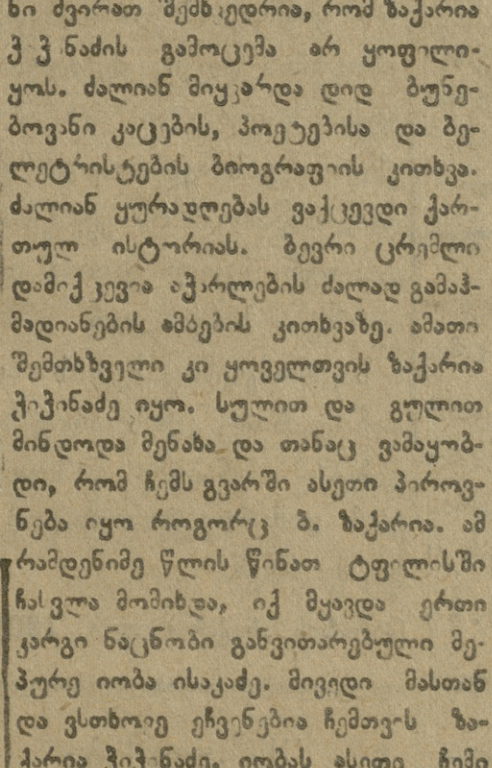 ნი ძვირათ შემხვედრია, რომ ზაქარია
ჭიჭინაძის გამოცემა არ ყოფილი-
ყოს. ძალიან მიყვარდა დიდ ბუნე-
ბოვანი კაცების, პოეტებისა და ბე-
ლეტრისტების ბიოგრაფიის კითხვა.
ძალიან ყურადღებას ვაქცევდი ქარ-
თულ ისტორიას. ბევრი ცრემლი
დამიქცევია აჭარლების ძალად გამაჰ-
მადიანების ამბების კითხვაზე. ამათი
შემთხზველი კი ყოველთვის ზაქარია
ჭიჭინაძე იყო. სულით და გულით
მინდოდა მენახა და თანაც ვამაყობ-
დი, რომ ჩემს გვარში ასეთი პიროვ-
ნება იყო როგორც ბ. ზაქარია. ამ
რამდენიმე წლის წინათ ტფილისში
ჩასვლა მომიხდა, იქ მყავდა ერთი
კარგი ნაცნობი განვითარებული მე-
პურე იობა ისაკაძე. მივედი მასთან
და ვსთხოვე ეჩვენებია ჩემთვის ზა-
ქარია ჭიჭინაძე. იობას ასეთი ჩემი